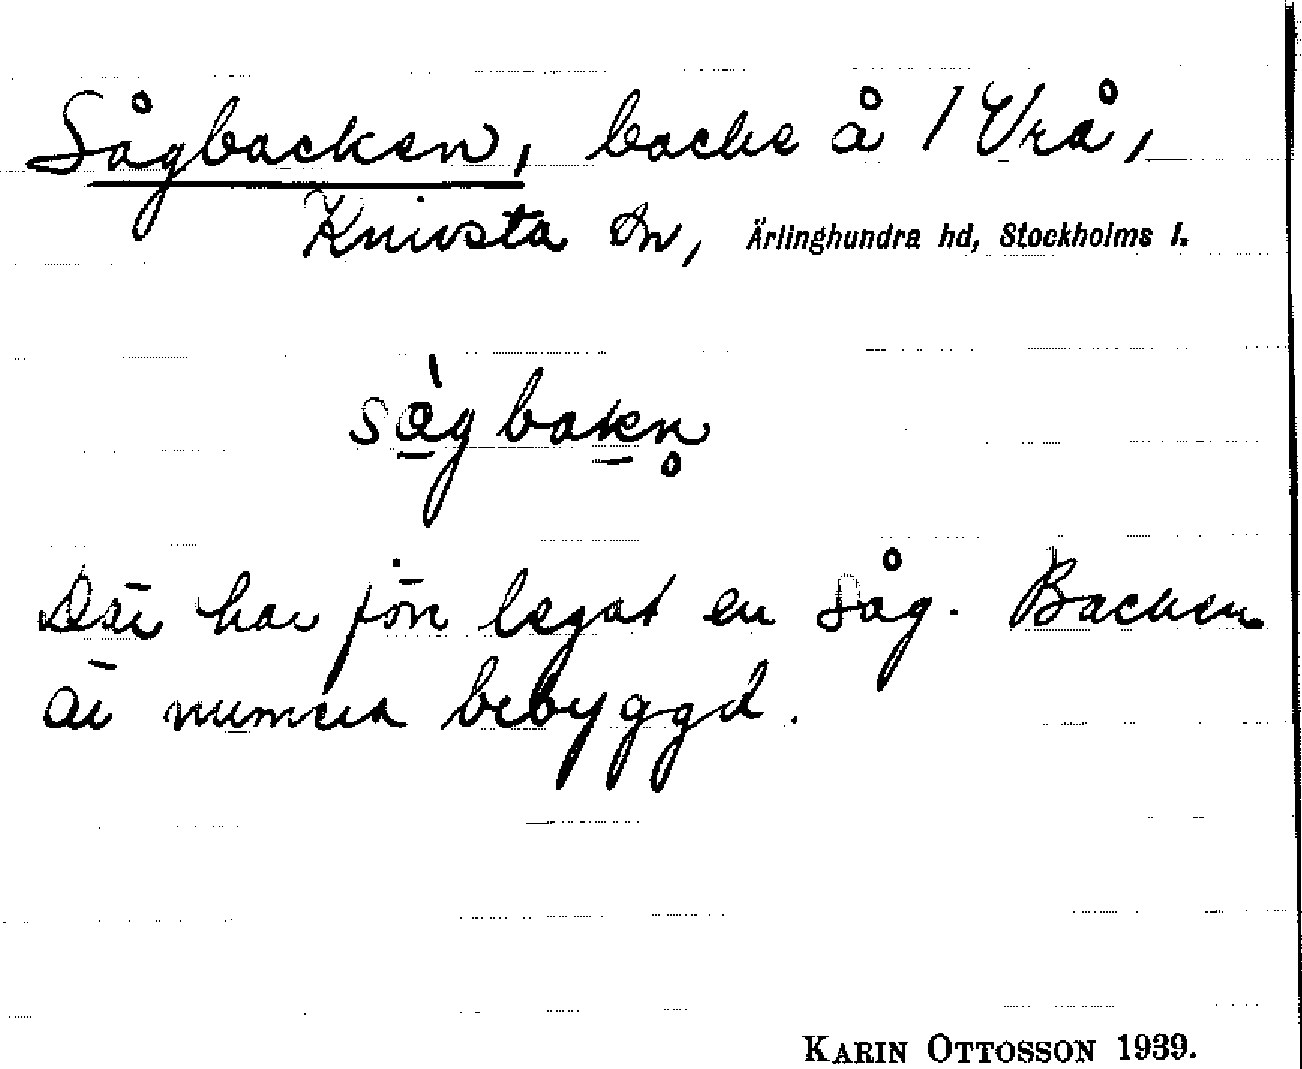 Sågbacken, backe å 1 Vrå,
Knivsta sn, Ärlinghundra hd, Stockholms l.
sàgbakn̥
Där har förr legat en såg. Backen
är numera bebyggd.
KARIN OTTOSSON 1939.